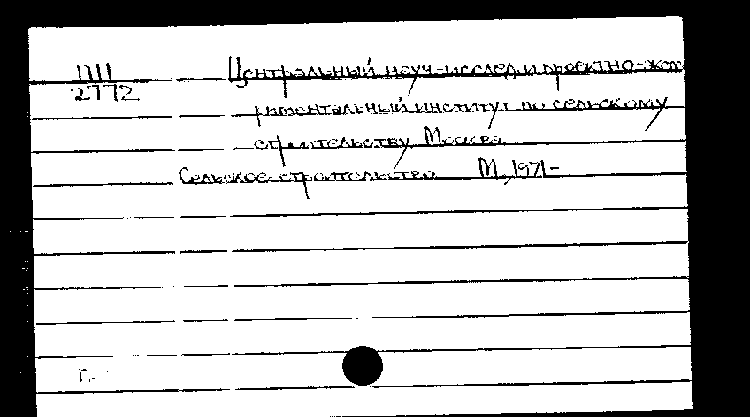 П11
2772
Центральный науч.-исслед. и проектно-экспе
риментальный институт по сельскому
строительству. Москва.
Сельское строительство М., 1971-
Г.